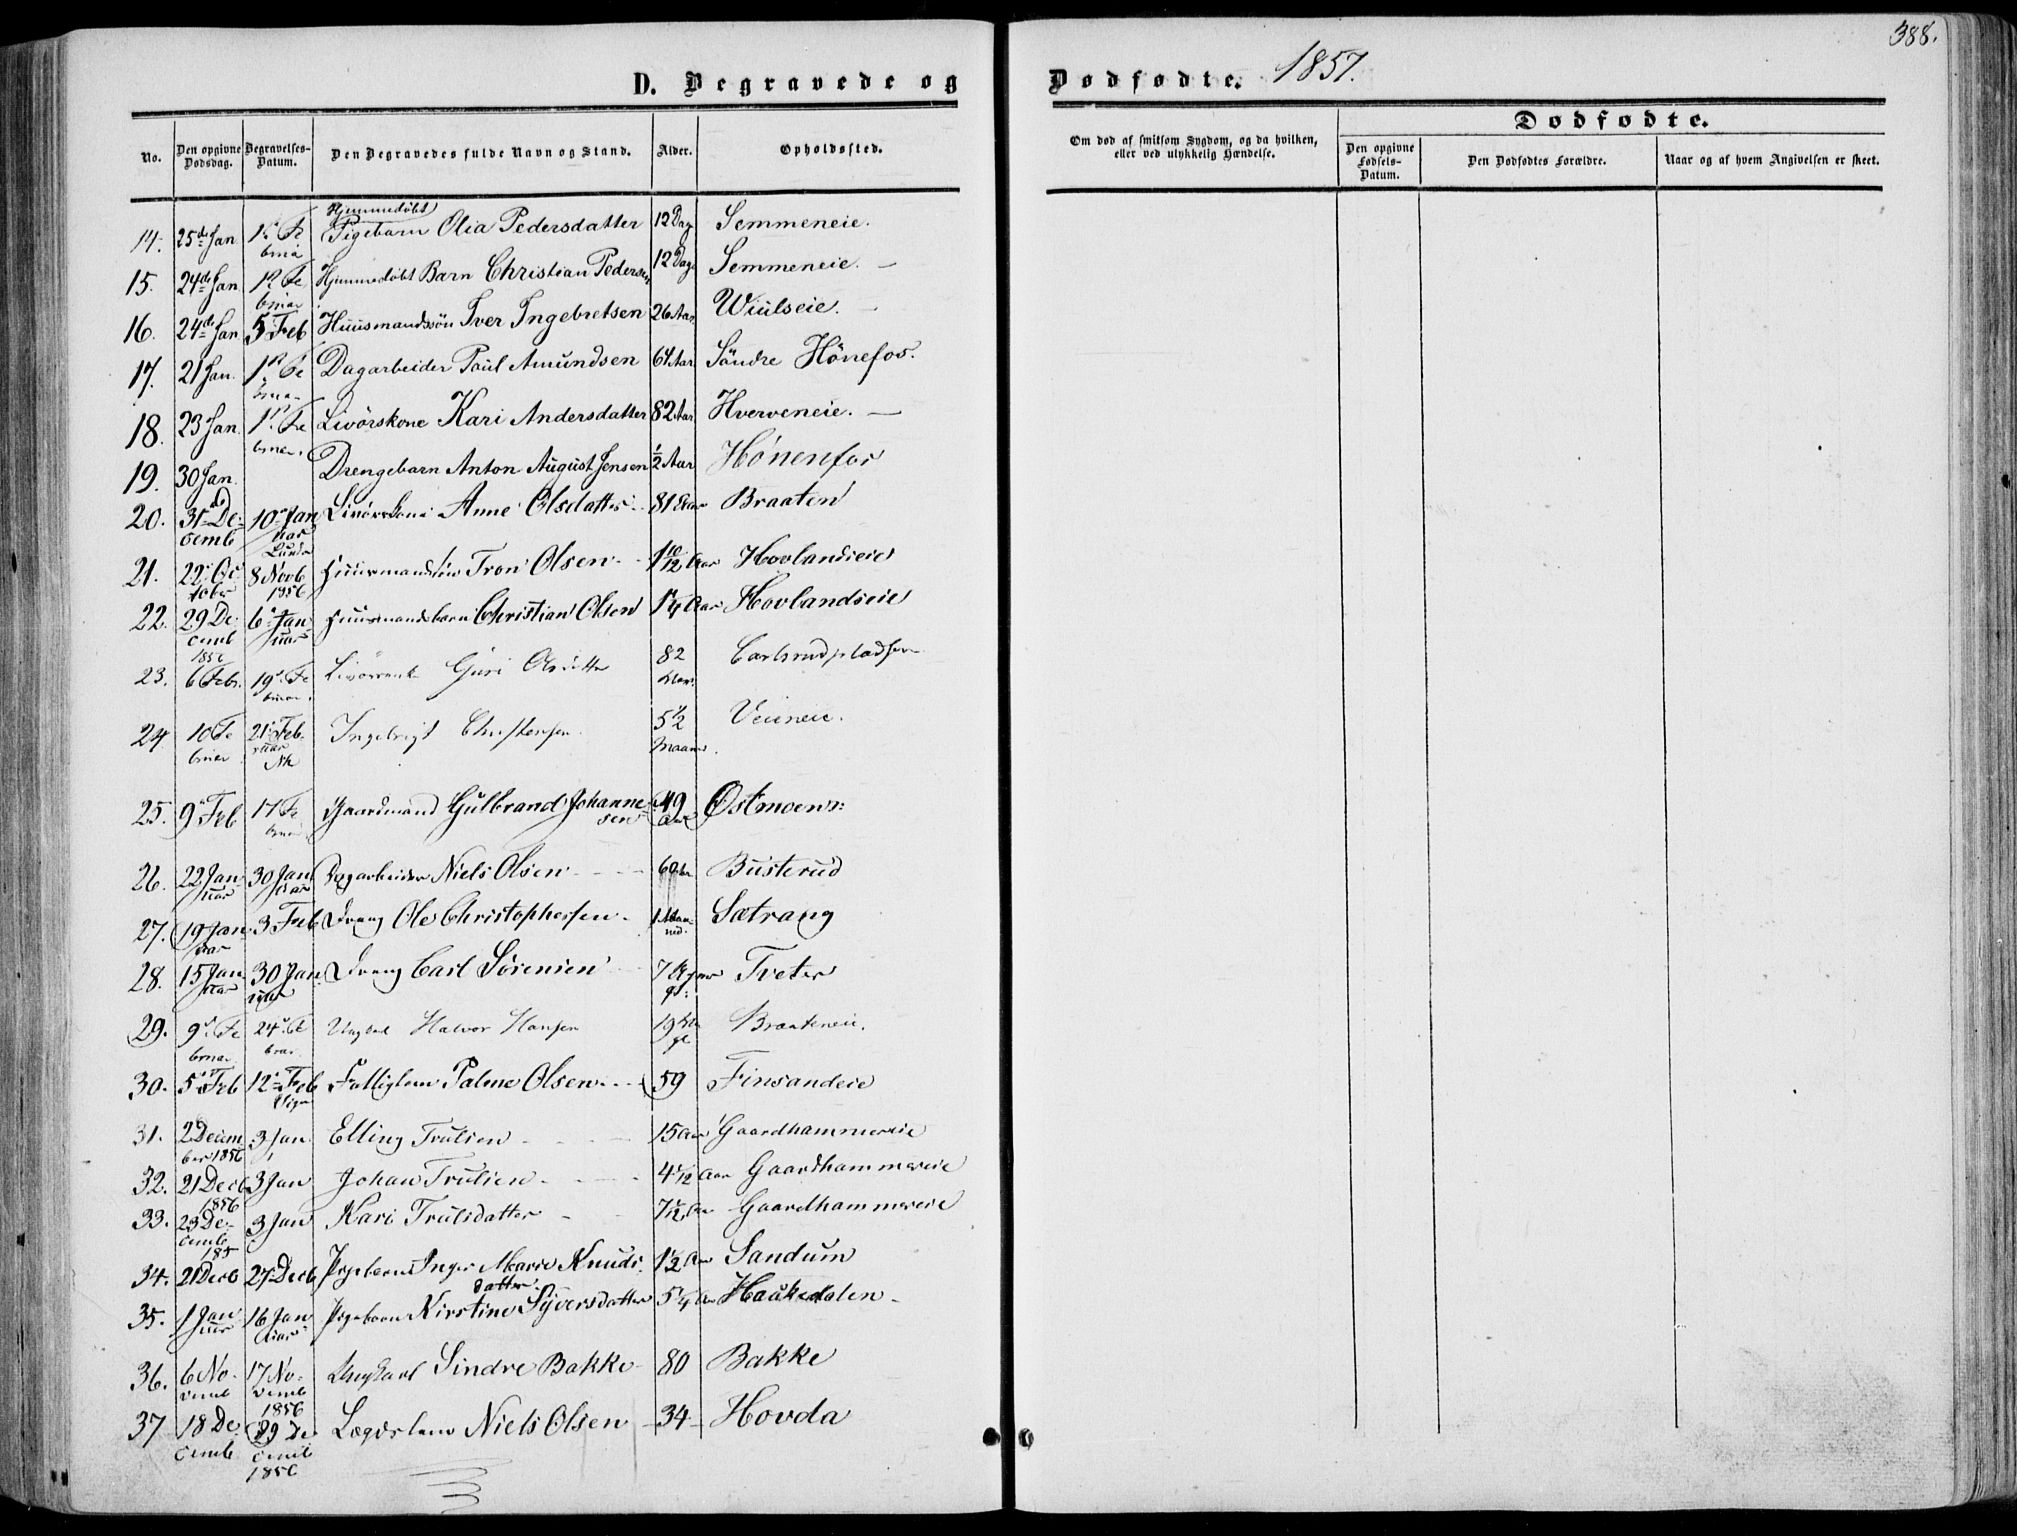 388.
D. Begravede og Dødfødte. 1857.
No. Den opgivne Dødsdag. Begravelses-Datum. Den Begravedes fulde Navn og Stand. Alder. Opholdssted.
Om død af smitsom Sygdom, og da hvilken, eller ved ulykkelig Hændelse.
Dødfødte.
Den opgivne Fødsels-Datum. Den Dødfødtes Forældre. Naar og af hvem Angivelsen er skeet.
14. 25de Jan 1ste Februar Hjemmedøbt Pigebarn Olia Pedersdatter 12 Dag Semmeneie.
15. 24de Jan 1ste Februar Hjemmedøbt Barn Christian Pedersen 12 Dage Semmeneie. —
16. 24de Jan 5 Feb Huusmandssön Iver Ingebretsen 26 Aar Wiulseie. —
17. 21 Jan. 1ste Februar Dagarbeider Paul Amundsen 64 Aar Söndre Hönefos.
18. 23 Jan. 1ste Februar Livörskone Kari Andersdatter 82 Aar Hverveneie. —
19. 30 Jan. Drengebarn Anton August Jensen ½ Aar Hönenfos
20. 31te Decemb 10de Januar Livörskone Anne Olsdatter 81 Aar Braaten
21. 22de October 8 Novb 1856 Huusmandssön Tron Olsen 1 10/12 Aar Hovlandseie
22. 29 Decemb 1856 6te Januar Huusmandsbarn Christian Olsen 1 1/4 Aar Hovlandseie
23. 6 Febr. 19de Februar. Guri Olsdatter 82 Aar Carlsrudpladsen
24 10 Februar 21de Februar Ingebrigt Christensen 5½ Maaned. Veieneie.
25. 9de Feb 17 Februar Gaardmand Gulbrand Johannesen 49 Aar Østmoen
26. 22 Januar 30 Januar Dagarbeider Niels Olsen 60 Aar Busterud
27. 19 Januar 3 Feb Dreng Ole Christophersen 1 Maaned. Sætrang
28. 15 Januar 30 Januar Dreng Carl Sörensen 7 Uger Tveter
29. 9de Februar 24de Februar Ungkarl Halvor Hansen 19 Braateneie.
30. 5te Feb 12te Feb Fattiglem Palme Olsen 59 Finsandeie
31. 2 December 1856 3 Jan Elling Trulsen 15 Aar Gaardhammereie
32. 21 Decb 1856 3 Jan Johan Trulsen 4 1/12 Aar Gaardhammereie
33. 23 Decemb 185 3 Jan Kari Trulsdatter 7½ Aar Gaardhammereie
34. 21 Decb 27 Decb Pigebarn Inger Marie Knudsdatter 1½ Aar Sandum
35. 1 Januar 16 Januar Pigebarn Kirstine Syversdatter 5 1/4 Aar Haukedalen
36. 6 Novemb 17 Novemb 1856 Ungkarl Sindre Bakke 80 Bakke
37 18 Decemb 29 Decemb 1856 Lægdslem Niels Olsen 34 Hovda